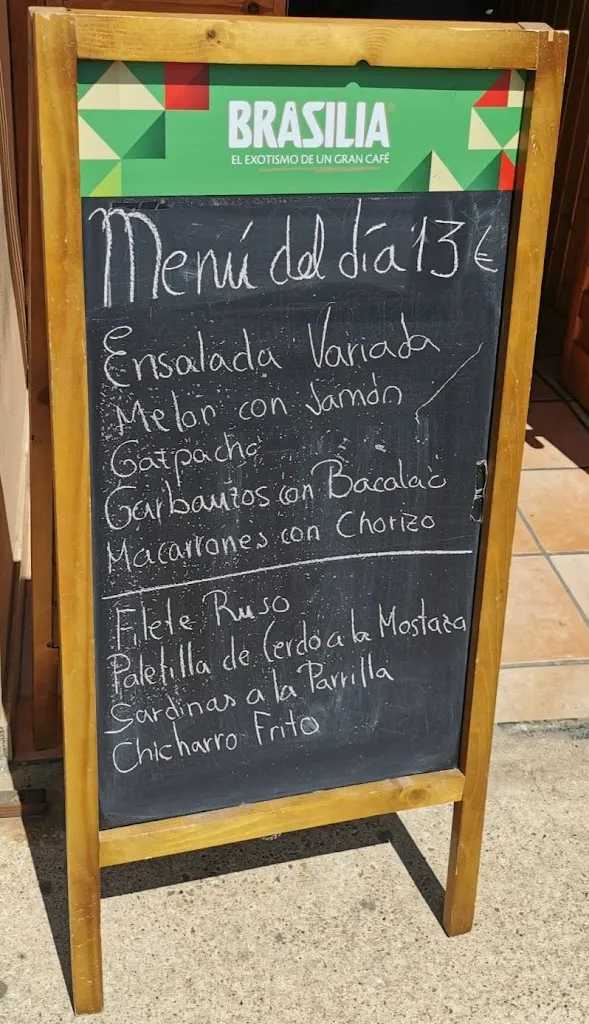 BRASILIA
EL EXOTISMO DE UN GRAN CAFÉ
Menú del día 13 €
Ensalada Variada
Melon con Jamón
Gazpacho
Garbanzos con Bacalao
Macarrones con Chorizo
Filete Ruso
Paletilla de Cerdo a la Mostaza
Sardinas a la Parrilla
Chicharro Frito